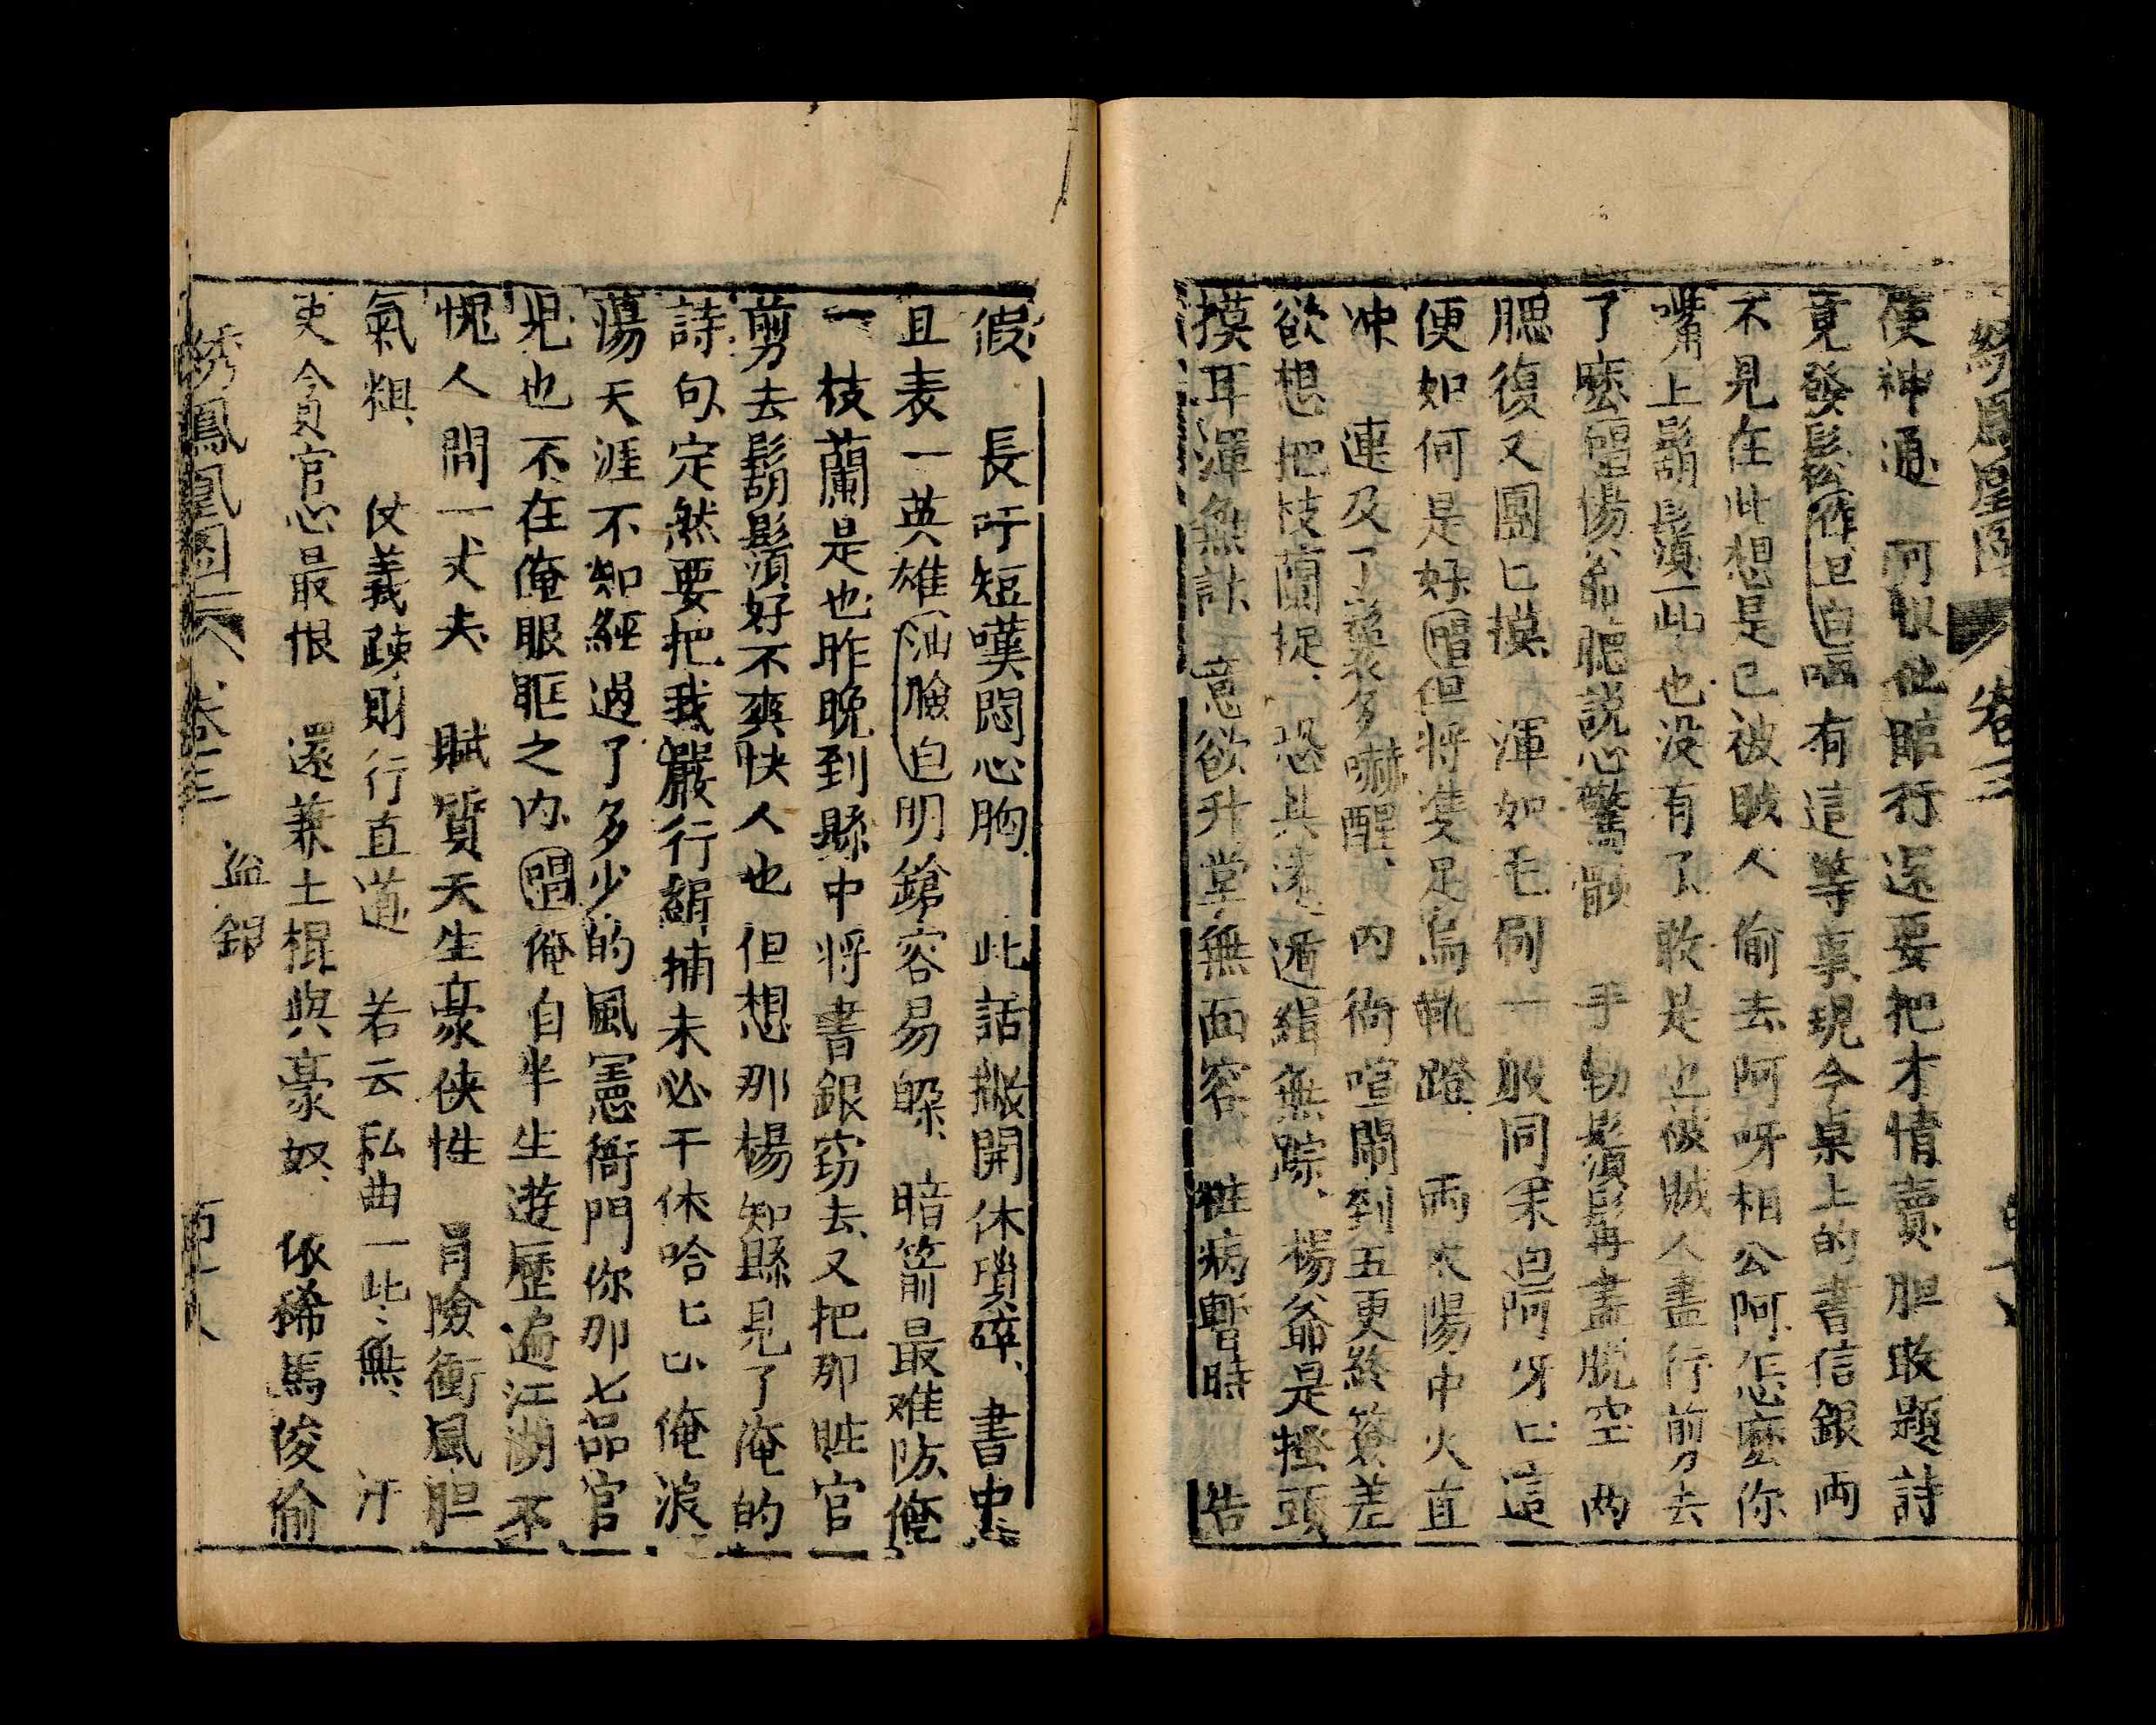 綉鳳凰圖 卷三
使神通 可恨他臨行還要把才情賣胆敢題詩
竟發鬆作旦白 有這等事現今桌上的書信銀両
不見在此想是已被賊人偷去阿呀相公阿怎麽你
嘴上鬍鬚一些也没有了敢是也被賊人盡行剪去
了麽唱楊爺聽説心驚駭 手勒鬚髯盡脱空 両
腮復又團匕摸 渾如毛刷一般同末白阿呀匕這
便如何是好唱但將隻足烏靴蹬 両太陽中火直
冲 連及了鬟多嚇醒 内衙喧鬧到五更終簽差
欲想把枝蘭捉 恐其遠遁緝無踪 楊爺是搔頭
摸耳渾無計 意欲升堂無面容 粧病暫時 告
假 長吁短嘆悶心胸 此話撇開休瑣碎 書中
且表一英雄 油臉白明鎗容易躱 暗箭最难防俺
一枝蘭是也昨晚到縣中將書銀窃去又把那賍官
剪去鬍鬚好不爽快人也但想那楊知縣見了俺的
詩句定然要把我嚴行緝捕未必干休哈匕匕俺浪
蕩天涯不知經過了多少的風憲衙門你那七品官
児也不在俺眼眶之内唱俺自半生遊歷遍江湖不
愧人間一丈夫 賦質天生豪侠性 冐險衝風胆
氣粗 仗義疎財行直道 若云私曲一些無 汙
吏貪官心最恨 還兼土棍與豪奴 依稀馬俊偷
盗銀
綉鳳凰圖 卷三